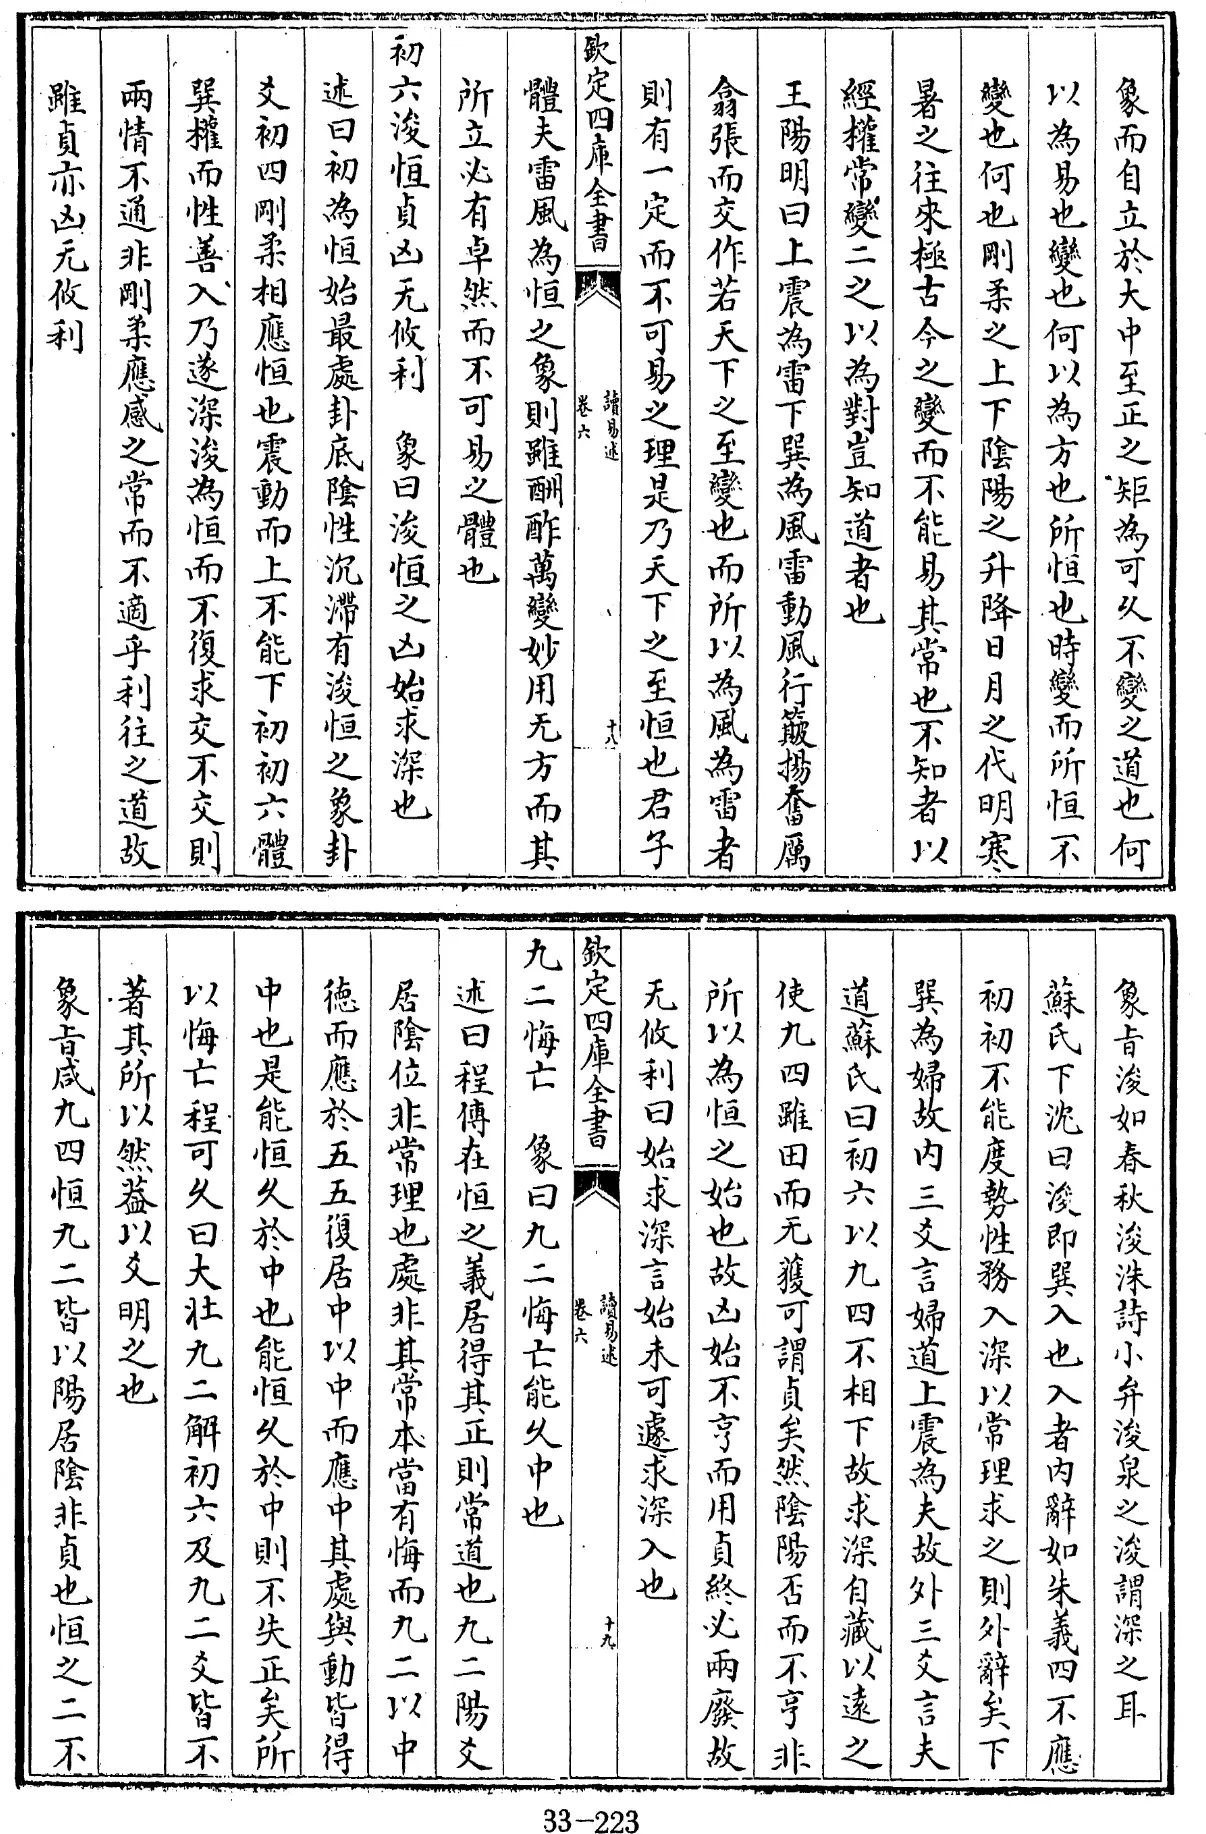 象而自立於大中至正之矩為可久不變之道也何
以為易也變也何以為方也所恒也時變而所恒不
變也何也剛柔之上下陰陽之升降日月之代明寒
暑之往來極古今之變而不能易其常也不知者以
經權常變二之以為對豈知道者也
王陽明曰上震為雷下巽為風雷動風行簸揚奮厲
翕張而交作若天下之至變也而所以為風為雷者
則有一定而不可易之理是乃天下之至恒也君子
欽定四庫全書
讀易述
卷六
十八
體夫雷風為恒之象則雖酬酢萬變妙用无方而其
所立必有卓然而不可易之體也
初六浚恒貞凶无攸利 象曰浚恒之凶始求深也
述曰初為恒始最處卦底陰性沉滯有浚恒之象卦
爻初四剛柔相應恒也震動而上不能下初初六體
巽權而性善入乃遂深浚為恒而不復求交不交則
兩情不通非剛柔應感之常而不適乎利往之道故
雖貞亦凶无攸利
象旨浚如春秋浚洙詩小弁浚泉之浚謂深之耳
蘇氏下沈曰浚即巽入也入者內辭如朱義四不應
初初不能度勢性務入深以常理求之則外辭矣下
巽為婦故內三爻言婦道上震為夫故外三爻言夫
道蘇氏曰初六以九四不相下故求深自藏以遠之
使九四雖田而无獲可謂貞矣然陰陽否而不亨非
所以為恒之始也故凶始不亨而用貞終必兩廢故
无攸利曰始求深言始未可遽求深入也
欽定四庫全書
讀易述
卷六
十九
九二悔亡 象曰九二悔亡能久中也
述曰程傳在恒之義居得其正則常道也九二陽爻
居陰位非常理也處非其常本當有悔而九二以中
德而應於五五復居中以中而應中其處與動皆得
中也是能恒久於中也能恒久於中則不失正矣所
以悔亡程可久曰大壯九二解初六及九二爻皆不
著其所以然蓋以爻明之也
象旨咸九四恒九二皆以陽居陰非貞也恒之二不
33-223